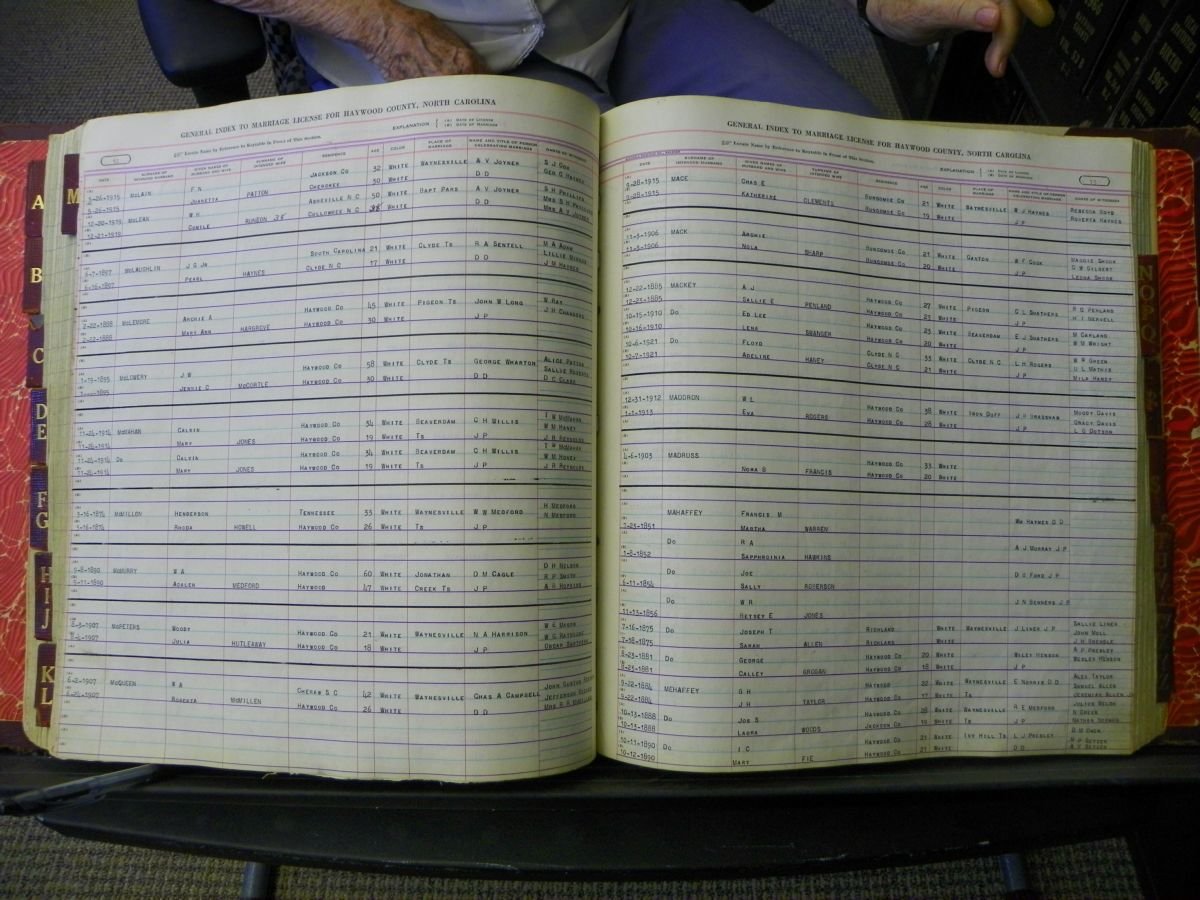 GENERAL INDEX TO MARRIAGE LICENSE FOR HAYWOOD COUNTY, NORTH CAROLINA
Locate Name by Reference to Keytable in Front of This Section.
EXPLANATION (A) DATE OF LICENSE (B) DATE OF MARRIAGE
DATE SURNAME OF INTENDED HUSBAND GIVEN NAMES OF HUSBAND AND WIFE SURNAME OF INTENDED WIFE RESIDENCE AGE COLOR PLACE OF MARRIAGE NAME AND TITLE OF PERSON CELEBRATING MARRIAGE NAMES OF WITNESS
MCLAIN F N JACKSON CO 32 WHITE WAYNESVILLE A V JOYNER S J COX
JUANETTA PATTON CHEROKEE 30 WHITE D D GEO G HAYNES
12-20-1919 MCLEAN W H ASHEVILLE N C 50 WHITE BAPT PARS A V JOYNER S H PHILLIPS
12-21-1919 RUNEON 38 CULLOWHEE N C 38 WHITE D D MRS A V JOYNER
6-7-1897 MCLAUGHLIN J G JR SOUTH CAROLINA 21 WHITE CLYDE TS R A SENTELL
6-16-1897 PEARL HAYNES CLYDE N C 17 WHITE D D J M HAYNES
2-22-1888 MCLEMORE ARCHIE A HAYWOOD CO 45 WHITE PIGEON TS JOHN W LONG W RAY
2-22-1888 MARY ANN HARGROVE HAYWOOD CO 30 WHITE J P J H CHAMBERS
1-19-1895 MCLOWERY J W HAYWOOD CO 58 WHITE CLYDE TS GEORGE WHARTON ALICE PATTON
JENNIE C MCCORTLE HAYWOOD CO 30 WHITE D D D C CLARK
11-24-1914 MCMAHAN CALVIN HAYWOOD CO 34 WHITE BEAVERDAM C H WILLIS T W MCMAHAN
11-24-1914 MARY JONES HAYWOOD CO 19 WHITE TS J P W M HANEY J R REYNOLDS
11-24-1914 DO CALVIN HAYWOOD CO 34 WHITE BEAVERDAM C H WILLIS T W MCMAHAN
11-24-1914 MARY JONES HAYWOOD CO 19 WHITE TS J P W M HONEY J R REYNOLDS
3-16-1874 MCMILLON HENDERSON TENNESSEE 33 WHITE WAYNESVILLE W W MEDFORD H MEDFORD
3-16-1874 RHODA HOWELL HAYWOOD CO 26 WHITE TS J P N MEDFORD
9-8-1890 MCMURRY W A HAYWOOD CO 60 WHITE JONATHAN D M CAGLE D H NELSON R P SMITH
9-11-1890 ADALER MEDFORD HAYWOOD 47 WHITE CREEK TS J P A G HOPKINS
8-3-1907 MCPETERS WOODY HAYWOOD CO 21 WHITE WAYNESVILLE N A HARRISON W E MASON
8-4-1907 JULIA HUTLEAWAY HAYWOOD CO 18 WHITE J P
6-2-1907 MCQUEEN W A CHERAW S C 42 WHITE WAYNESVILLE CHAS A CAMPBELL
6-24-1907 ROBERTA MCMILLEN HAYWOOD CO 26 WHITE D D
GENERAL INDEX TO MARRIAGE LICENSE FOR HAYWOOD COUNTY, NORTH CAROLINA
Locate Name by Reference to Keytable in Front of This Section.
EXPLANATION (A) DATE OF LICENSE (B) DATE OF MARRIAGE
DATE SURNAME OF INTENDED HUSBAND GIVEN NAMES OF HUSBAND AND WIFE SURNAME OF INTENDED WIFE RESIDENCE AGE COLOR PLACE OF MARRIAGE NAME AND TITLE OF PERSON CELEBRATING MARRIAGE NAMES OF WITNESS
9-28-1915 MACE CHAS E BUNCOMBE CO 21 WHITE WAYNESVILLE W J HAYNES REBECCA BOYD
9-28-1915 KATHERINE CLEMENTS BUNCOMBE CO 19 WHITE J P ROBERTA HAYNES
11-3-1906 MACK ARCHIE BUNCOMBE CO 21 WHITE CANTON W F COOK MAGGIE SHOOK
11-3-1906 NOLA SHARP BUNCOMBE CO 20 WHITE J P G W GILBERT LEONA SHOOK
12-22-1885 MACKEY A J HAYWOOD CO 27 WHITE PIGEON G L SMATHERS R G PENLAND
12-23-1885 SALLIE E PENLAND HAYWOOD CO 21 WHITE J P
10-15-1910 DO ED LEE HAYWOOD CO 23 WHITE BEAVERDAM E J SMATHERS M GARLAND
10-16-1910 LENA SWANGER HAYWOOD CO 20 WHITE J P W M WRIGHT
10-6-1921 DO FLOYD CLYDE N C 33 WHITE CLYDE N C L H ROGERS W W GREEN
10-7-1921 ADELINE HANEY CLYDE N C 21 WHITE J P MILA HANEY
12-31-1912 MADDRON W L HAYWOOD CO 38 WHITE IRON DUFF J H BRADSHAW MOODY DAVIS
1-1-1913 EVA ROGERS HAYWOOD CO 28 WHITE J P GRACY DAVIS L G DOTSON
4-6-1903 MADRUSS HAYWOOD CO 33 WHITE
NORA B FRANCIS HAYWOOD CO 20 WHITE
MAHAFFEY FRANCIS M WM HAYMES D D
7-23-1851 MARTHA WARREN
DO R A A J MURRAY J P
1-8-1852 SAPPHRONIA HAWKINS
DO JOE D G FORD J P
6-11-1854 SALLY ROBERSON
DO W R J N BENNERS J P
11-13-1856 BETSEY E JONES
7-16-1875 DO JOSEPH T RICHLAND WHITE WAYNESVILLE J LINER J P SALLIE LINER
7-18-1875 SARAH ALLEN RICHLAND WHITE JOHN MULL
8-23-1881 DO GEORGE HAYWOOD CO 20 WHITE WILEY HENSON A P PRESLEY
8-23-1881 CALLEY GROGAN HAYWOOD CO 18 WHITE J P WESLEY HENSON
9-22-1884 MEHAFFEY G H HAYWOOD 22 WHITE WAYNESVILLE E NORRIS D D ALEX TAYLOR SAMUEL ALLEN
9-22-1884 J H TAYLOR HAYWOOD CO 17 WHITE TS JEREMIAH ALLEN
10-13-1888 DO JOE S HAYWOOD CO 28 WHITE WAYNESVILLE R E MEDFORD JULIUS WELCH N GREEN
10-13-1888 LAURA WOODS JACKSON CO 19 WHITE TS J P
10-11-1890 DO I C HAYWOOD CO 21 WHITE IVY HILL TS L J PRESLEY D M OWEN
10-12-1890 MARY FIE HAYWOOD CO 21 WHITE D D
A
B
C
D E
F G
H I J
K L
M
N O P Q
1967